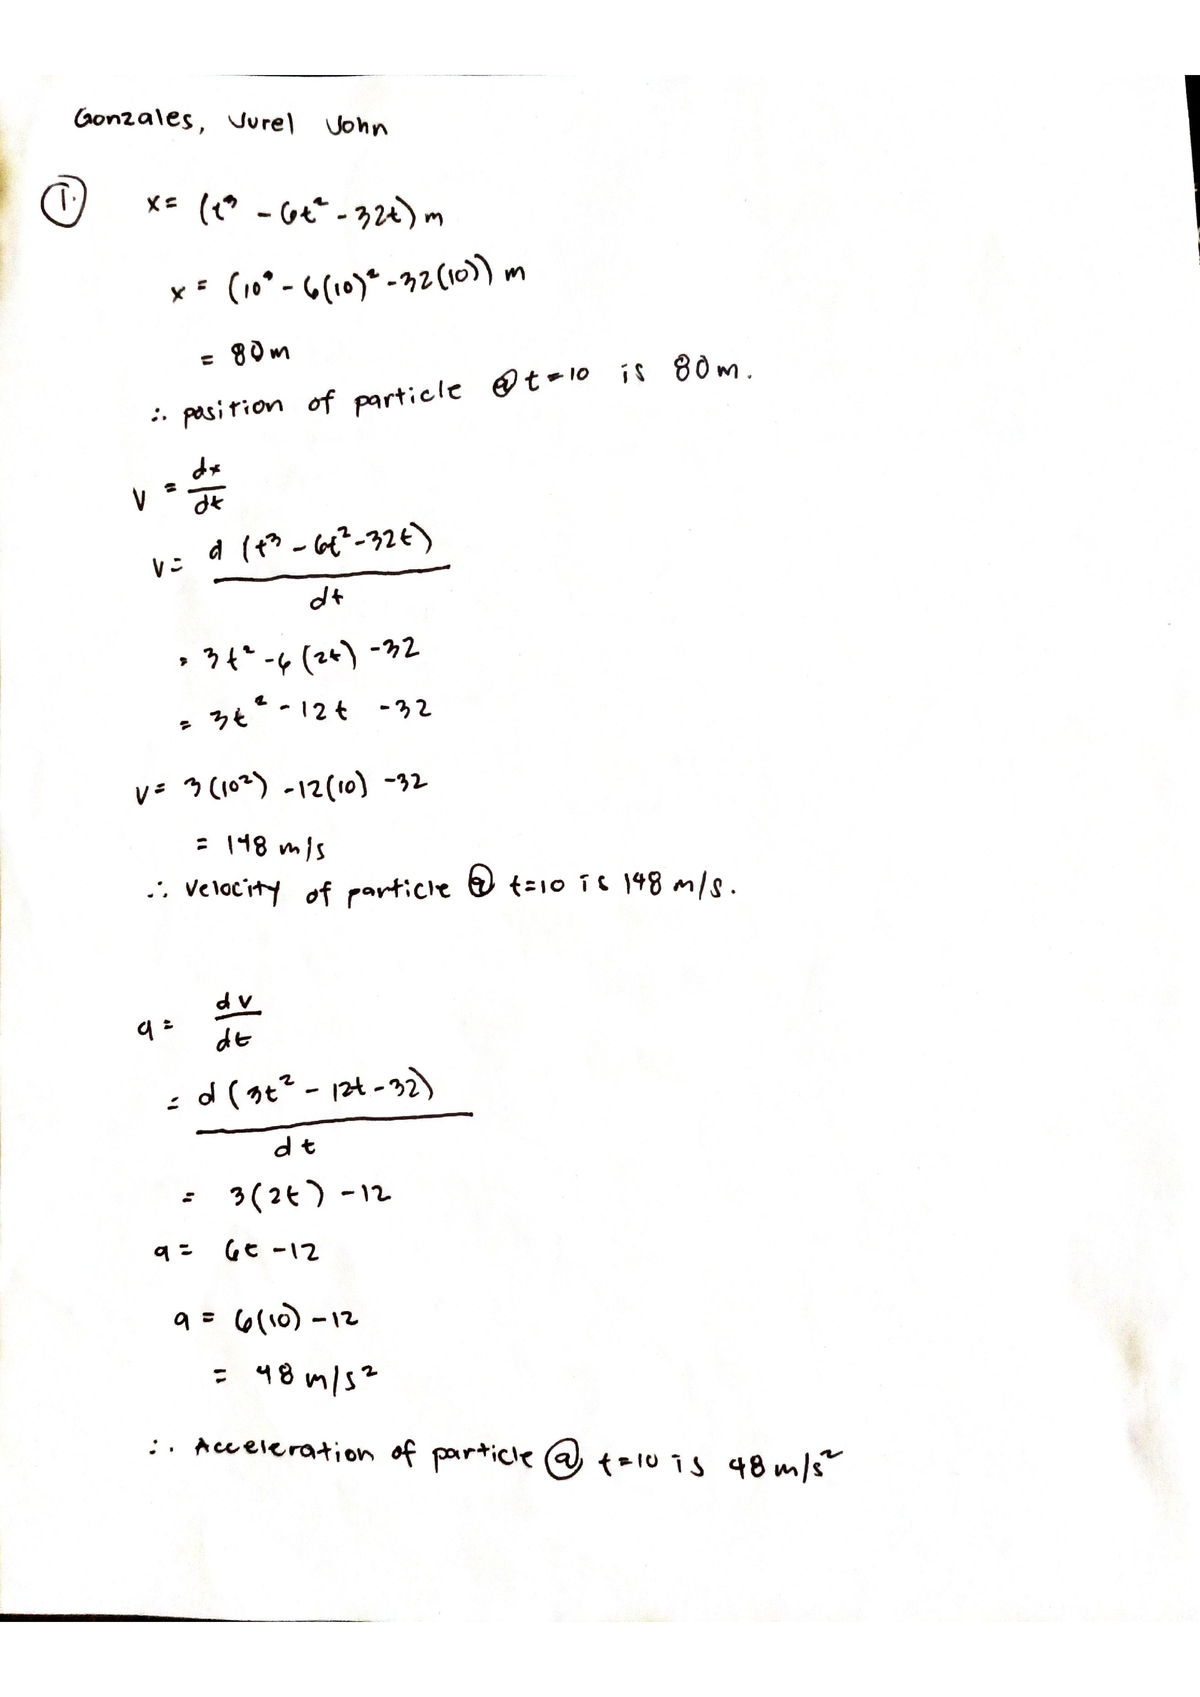 Gonzales, Jurel John
1. x = (t³ - 6t² - 32t) m
x = (10³ - 6(10)² - 32(10)) m
= 80 m
∴ position of particle @ t = 10 is 80 m.
v = dx/dt
v = d (t³ - 6t² - 32t)
dt
= 3t² - 6(2t) - 32
= 3t² - 12t - 32
v = 3(10²) - 12(10) - 32
= 148 m/s
∴ velocity of particle @ t = 10 is 148 m/s.
a = dv/dt
= d (3t² - 12t - 32)
dt
= 3(2t) - 12
a = 6t - 12
a = 6(10) - 12
= 48 m/s²
∴ Acceleration of particle @ t = 10 is 48 m/s²